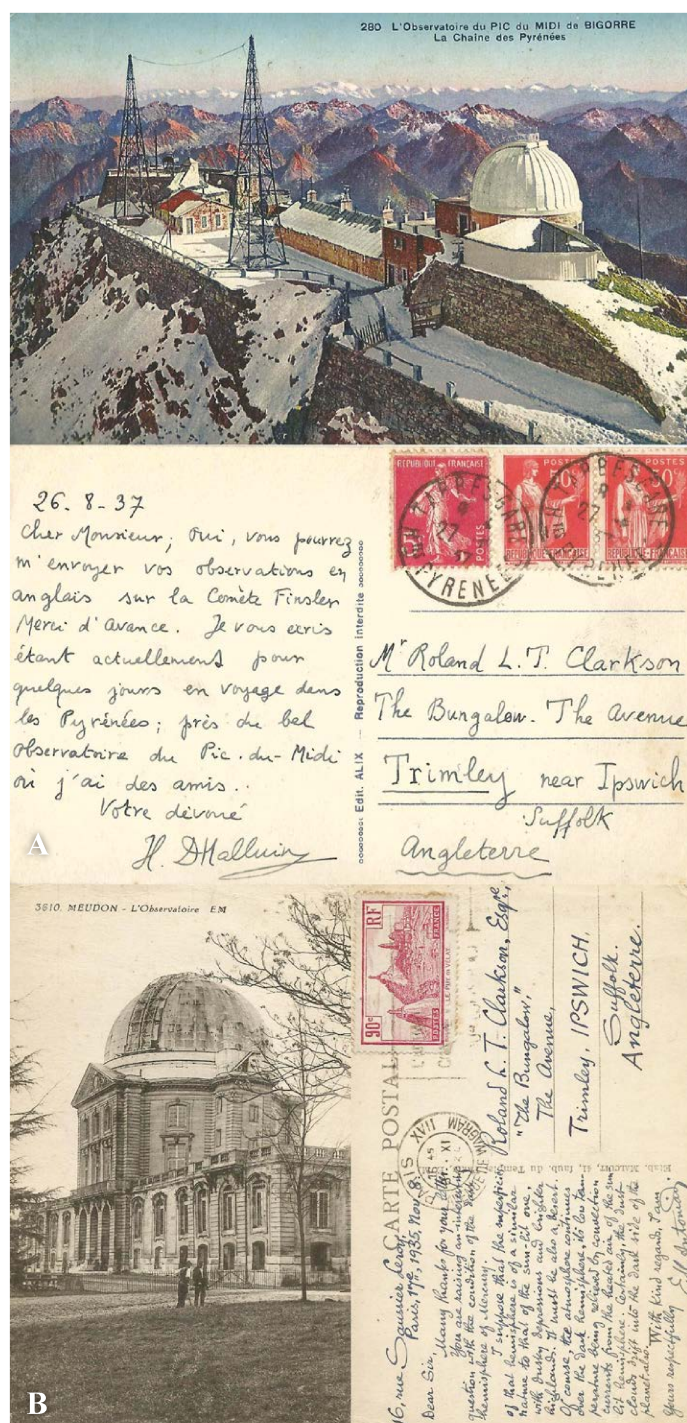 280 L'Observatoire du PIC du MIDI de BIGORRE
La Chaîne des Pyrénées
26.8-37
Cher Monsieur; Oui, vous pourrez
m'envoyer vos observations en
anglais sur la Comète Finsler
Merci d'Avance. Je vous ecris
étant actuellement pour
quelques jours en voyage dans
les Pyrénées; près du bel
observatoire du Pic-du-Midi
où j'ai des amis..
Votre dévoué
H. DHalluin
A
Edit. ALIX — Reproduction interdite
REPUBLIQUE FRANÇAISE
POSTES
POSTES
50c
REPUBLIQUE FRANÇAISE
POSTES
50c
REPUBLIQUE FRANÇAISE
TARBES-GARE
27
37
PYRENEES
TARBES GARE
27
Mr Roland L.T. Clarkson
The Bungalow. The Avenue
Trimley near Ipswich
Suffolk
Angleterre
3610. MEUDON - L'Observatoire EM
B
RF
FRANCE
LE PUY-EN-VELAY
POSTES
90c
CARTE POSTALE
PARIS
XI
Roland L. T. Clarkson, Esqre,
"The Bungalow,"
The Avenue,
Trimley, IPSWICH.
Suffolk.
Angleterre.
16, rue Saussier Leroy,
Paris, 17e, 1935, Nov. 8.
Dear Sir,
Many thanks for your letter.
You are raising an interesting
question with the condition of the dark
hemisphere of Mercury.
I suppose that the superficies
of that hemisphere is of a similar
nature to that of the sun-lit one,
with dusky depressions and brighter
highlands. It must be also a desert.
Of course, the atmosphere continues
over the dark hemisphere, its low tem-
perature being relieved by convection
currents from the heated air of the sun
lit hemisphere. Certainly the dust
clouds drift into the dark side of the
planet also.
With kind regards, I am
Yours respectfully
E M Antoniadi